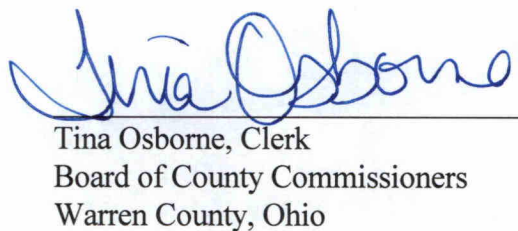 Tina Osborne
Tina Osborne, Clerk
Board of County Commissioners
Warren County, Ohio